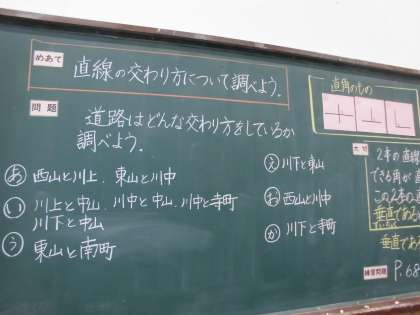 めあて
直線の交わり方について調べよう。
問題
道路はどんな交わり方をしているか
調べよう。
あ 西山と川上、東山と川中
い 川上と中山、川中と中山、川中と寺町
川下と中山
う 東山と南町
え 川下と東山
お 西山と川中
か 川下と寺町
直角のもの
2本の直線
できる角が直
この2本の直
垂直である
垂直である
練習問題 P.68